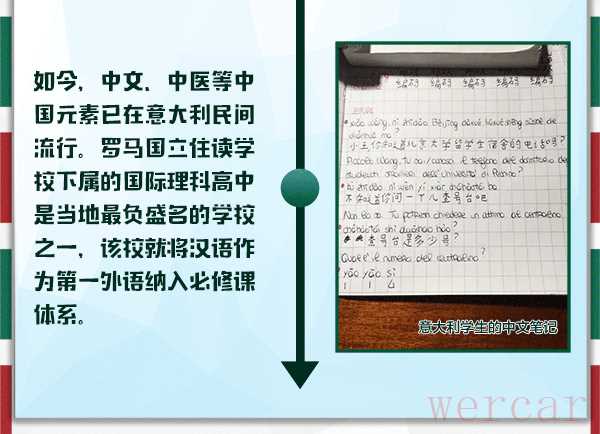 如今，中文、中医等中
国元素已在意大利民间
流行。罗马国立住读学
校下属的国际理科高中
是当地最负盛名的学校
之一，该校就将汉语作
为第一外语纳入必修课
体系。
xiǎo wáng, nǐ zhīdào Běijīng dàxué liúxuéshēng sùshè de
diànhuà ma?
小王你知道北京大学留学生宿舍的电话吗?
studenti stranieri dell'università di Pechino?
bù zhīdào nǐ wèn yí xiàr cháhàotái ba
不知道你问一下儿查号台吧
Non lo so. Tu potresti chiedere un attimo al centralino.
cháhàotái shì duōshǎo hào?
查号台是多少号?
Qual è il numero del centralino?
yāo yāo sì
1 1 4
意大利学生的中文笔记
wercar